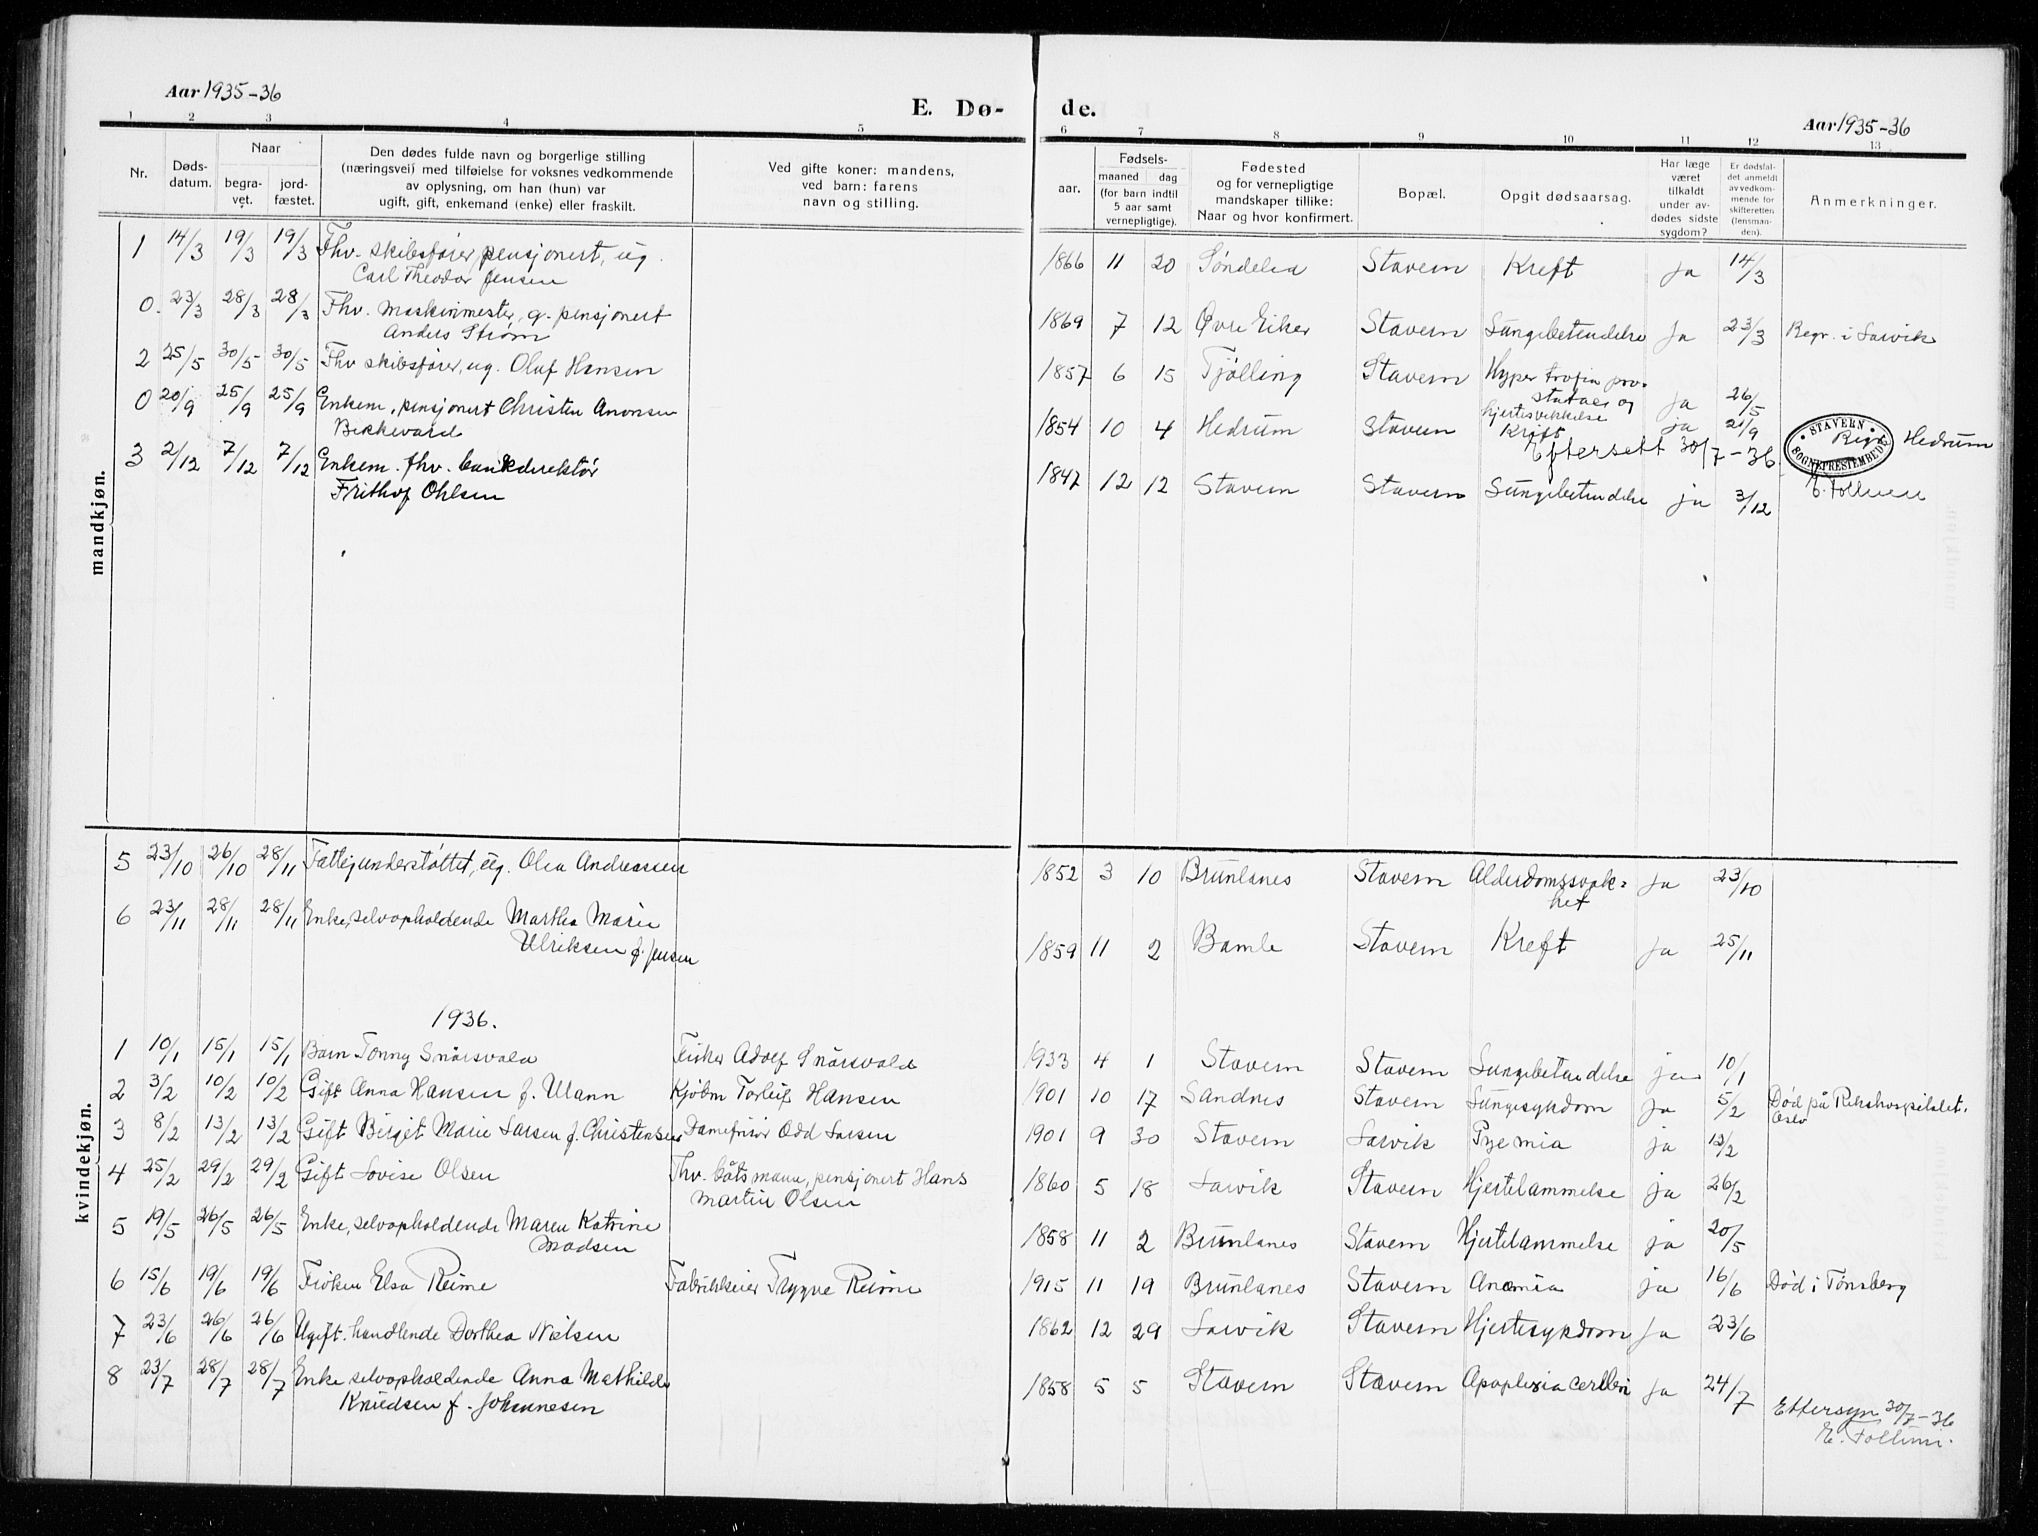 Aar 1935-36
E. Dø-
1 2 3 4 5
Nr.
Døds-
datum.
Naar
begra-
vet.
jord-
fæstet.
Den dødes fulde navn og borgerlige stilling
(næringsvei) med tilføielse for voksnes vedkommende
av oplysning, om han (hun) var
ugift, gift, enkemand (enke) eller fraskilt.
Ved gifte koner: mandens,
ved barn: farens
navn og stilling.
mandkjøn.
1 14/3 19/3 19/3 Fhv. skibsfører, pensjonert, ug.
Carl Theodor Jensen
0. 23/3 28/3 28/3 Fhv. Maskinmester, g. pensjonert
Anders Strøm
2 25/5 30/5 30/5 Fhv skibsfører, ug. Oluf Hansen
0 20/9 25/9 25/9 Enkem, pensjonert Christen Anonsen
Bekkevard
3 2/12 7/12 7/12 Enkem. fhv. bankdirektør
Frithof Ohlsen
kvindekjøn.
5 23/10 26/10 28/11 Fattigunderstøttet, ug. Olea Andreassen
6 23/11 28/11 28/11 Enke, selvopholdende Marthea Marie
Ulriksen f. Jensen
1936.
1 10/1 15/1 15/1 Barn Tonny Snårsvold Fisker Adolf Snårsvold
2 3/2 10/2 10/2 Gift Anna Hansen f. Ulann Kjøbm Torleif Hansen
3 8/2 13/2 13/2 Gift Birgit Marie Larsen f. Christensen Damefrisør Odd Larsen
4 25/2 29/2 29/2 Gift Lovise Olsen Fhv. båtsmann, pensjonert Hans
Martin Olsen
5 19/5 26/5 26/5 Enke, selvopholdende Maren Katrine
Madsen
6 15/6 19/6 19/6 Frøken Elsa Reime Fabrikkeier Trygve Reime
7 23/6 26/6 26/6 Ugift. handlende Dorthea Nielsen
8 23/7 28/7 28/7 Enke selvopholdende Anna Mathilde
Knudsen f. Johannesen
de.
Aar 1935-36
6 7 8 9 10 11 12 13
aar.
Fødsels-
maaned dag
(for barn indtil
5 aar samt
vernepligtige).
Fødested
og for vernepligtige
mandskaper tillike:
Naar og hvor konfirmert.
Bopæl.
Opgit dødsaarsag.
Har læge
været
tilkaldt
under av-
dødes sidste
sygdom?
Er dødsfal-
det anmeldt
av vedkom-
mende for
skifteretten
(lensman-
den).
Anmerkninger.
1866 11 20 Søndeled Stavern Kreft ja 14/3
1869 7 12 Øvre Eiker Stavern Lungebetendelse Ja 23/3 Begr. i Larvik
1857 6 15 Tjølling Stavern Hypertrofia pro-
statae og
hjertesvekkelse ja 26/5
1854 10 4 Hedrum Stavern Kreft ja 21/9 Begr. Hedrum
STAVERN SOGNEPRESTEMBEDE
Eftersett 30/7-36
E. Follum
1847 12 12 Stavern Stavern Lungebetendelse ja 3/12
1852 3 10 Brunlanes Stavern Alderdomssvak=
het ja 23/10
1859 11 2 Bamle Stavern Kreft ja 25/11
1933 4 1 Stavern Stavern Lungebetendelse ja 10/1
1901 10 17 Sandnes Stavern Lungesykdom ja 5/2 Død på Rikshospitalet.
Oslo
1901 9 30 Stavern Larvik Pyemia ja 12/2
1860 5 18 Larvik Stavern Hjertelammelse ja 26/2
1858 11 2 Brunlanes Stavern Hjertelammelse ja 20/5
1915 11 19 Brunlanes Stavern Anæmia ja 16/6 Død i Tønsberg
1862 12 29 Larvik Stavern Hjertesykdom Ja 23/6
1858 5 5 Stavern Stavern Apoplexia cerebri ja 24/7
Ettersyn 30/7-36
E. Follum.